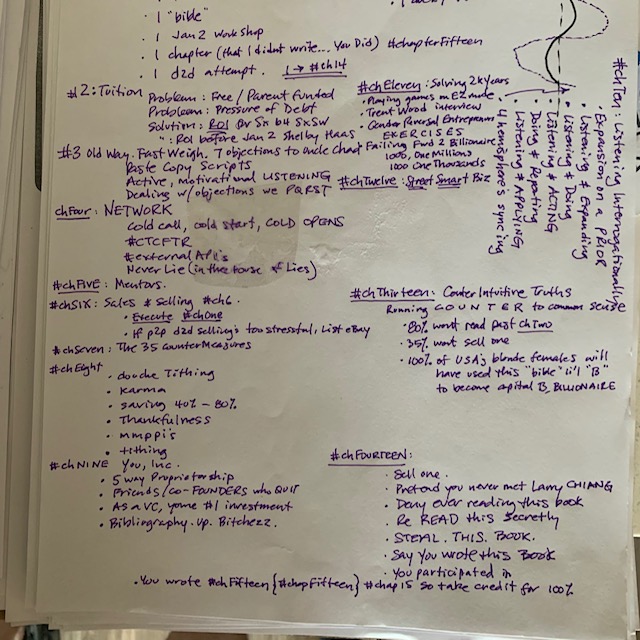 · 1 "bible"
· 1 Jan 2 Workshop
· 1 chapter (that I didnt write... You Did) #chapterFifteen
· 1 d2d attempt. 1 → #ch14
#2: Tuition
Problem: Free / Parent funded
Problem: Pressure of Debt
Solution: ROI for Sx b4 SxSW
: ROI before Jan 2 Shelby Haas
#3 Old Way. Fast Weigh. 7 objections to uncle chad
Paste Copy Scripts
Active, motivational LISTENING
Dealing w/ objections we PQRST
chFour: NETWORK
Cold call, cold start, COLD OPENS
#CTCFTR
#external APL's
Never Lie (in the house of Lies)
#chFIVE: Mentors.
#chSIX: Sales & Selling #ch6.
· Execute #chOne
· If p2p d2d selling's too stressful, List eBay
#chSeven: The 35 counterMeasures
#chEight
· douche Tithing
· Karma
· saving 40% - 80%
· Thankfulness
· mmppi's
· tithing
#chNINE You, Inc.
· 5 way Proprietorship
· Friends / co-FOUNDERS who QUIT
· As a VC, youre #1 investment
· Bibliography. Up. Bitchezz.
#chEleven: Solving 2k Years
· Playing games in EZ mode
· Trent Wood interview
· Gender Reversal Entrepreneurs
EXERCISES
Failing Fwd 2 Billionaire
1000, One Millions
1000 One Thousands
#chTwelve: Street Smart Biz
#chTen: Listening Interrogationally
· Expansion on a PRIOR
· Listening & Expanding
· Listening & Doing
· Listening & ACTING
· Doing & Reporting
· Listening & APPLYING
· 4 Hemisphere's syncing
#chThirteen: Counter Intuitive Truths
Running COUNTER to common sense
· 80% wont read past chTwo
· 35% wont sell one
· 100% of USA's blonde females will
have used this "bible" li'l "B"
to become capital B, BILLIONAIRE
#chFOURTEEN:
· Sell one.
· Pretend you never met Larry CHIANG
· Deny ever reading this book
· Re READ this secretly
· STEAL. THIS. BOOK.
· Say You wrote this Book
· You participated in
· You wrote #chFifteen {#chapFifteen} #chap15 so take credit for 100%